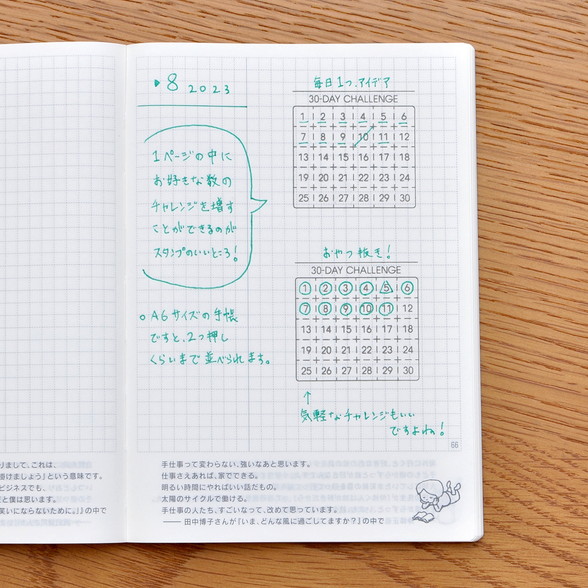 ▶8 2023
1ページの中に
お好きな数の
チャレンジを増す
ことができるのが
スタンプのいいところ!
○A6サイズの手帳
ですと、2つ押し
くらいまで並べられます。
毎日1つ、アイデア
30-DAY CHALLENGE
1 2 3 4 5 6
7 8 9 10 11 12
13 14 15 16 17 18
19 20 21 22 23 24
25 26 27 28 29 30
おやつ抜き!
30-DAY CHALLENGE
1 2 3 4 5 6
7 8 9 10 11 12
13 14 15 16 17 18
19 20 21 22 23 24
25 26 27 28 29 30
↑
気軽なチャレンジもいい
ですよね!
66
りまして、これは、
掛けましょう」という意味です。
ビジネスでも、
だと僕は思います。
笑いにならないために。』の中で
手仕事って変わらない、強いなあと思います。
仕事さえあれば、家でできる。
明るい時間にやればいい話だもの。
太陽のサイクルで働ける。
手仕事の人たち、すごいなって、改めて思っています。
——田中博子さんが『いま、どんな風に過ごしてますか?』の中で